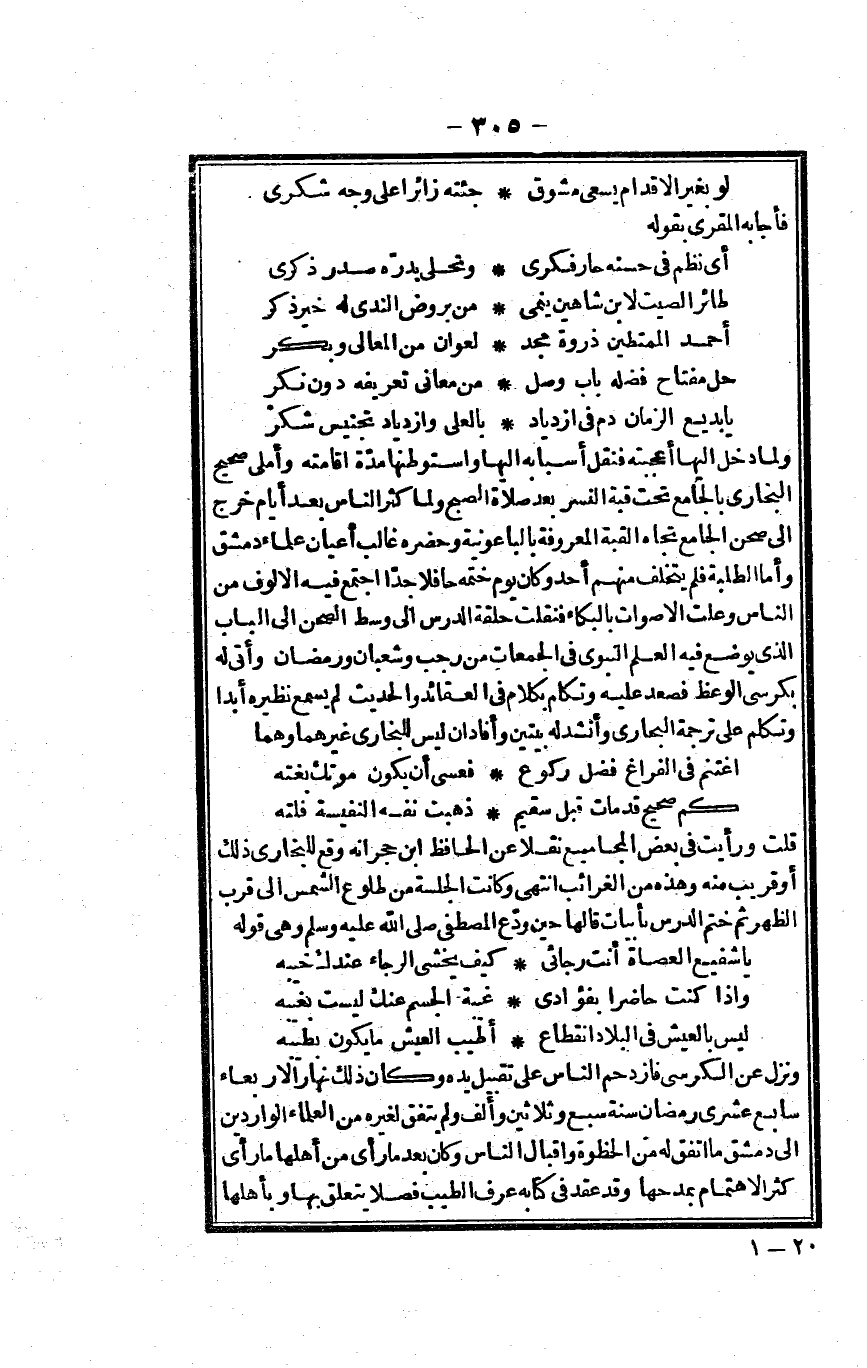 - ٣٠٥ -
لو بغير الاقدام يسعى مشوق * جئته زائرا على وجه شكرى
فأجابه المقرى بقوله
أى نظم فى حسنه حار فكرى * وتحلى بدرّه صدر ذكرى
طائر الصيت لابن شاهين ينمى * من بروض الندى له خير ذكر
أحمد الممتطين ذروة مجد * لعوان من المعالى وبكر
حل مفتاح فضله باب وصل * من معانى تعريفه دون نكر
يا بديع الزمان دم فى ازدياد * بالعلى وازدياد تجنيس شكر
ولما دخل اليها أعجبته فنقل أسبابه اليها واستوطنها مدّة اقامته وأملى صحيح
البخارى بالجامع تحت قبة النسر بعد صلاة الصبح ولما كثر الناس بعد أيام خرج
الى صحن الجامع تجاه القبة المعروفة بالباعونية وحضره غالب أعيان علماء دمشق
وأما الطلبة فلم يتخلف منهم أحد وكان يوم ختمه حافلا جدّا اجتمع فيه الالوف من
الناس وعلت الاصوات بالبكاء فنقلت حلقة الدرس الى وسط الصحن الى الباب
الذى يوضع فيه العلم النبوى فى الجمعات من رجب وشعبان ورمضان وأتى له
بكرسى الوعظ فصعد عليه وتكلم بكلام فى العقائد والحديث لم يسمع نظيره أبدا
وتكلم على ترجمة البخارى وأنشد له بيتين وأفاد ان ليس للبخارى غيرهما وهما
اغتنم فى الفراغ فضل ركوع * فعسى أن يكون موتك بغته
كم صحيح قد مات قبل سقيم * ذهبت نفسه النفيسة فلته
قلت ورأيت فى بعض المجاميع نقلا عن الحافظ ابن حجر انه وقع للبخارى ذلك
أو قريب منه وهذه من الغرائب انتهى وكانت الجلسة من طلوع الشمس الى قرب
الظهر ثم ختم الدرس بأبيات قالها حين ودّع المصطفى صلى الله عليه وسلم وهى قوله
يا شفيع العصاة أنت رجائى * كيف يخشى الرجاء عندك خيبه
واذا كنت حاضرا بفؤادى * غيبة الجسم عنك ليست بغيبه
ليس بالعيش فى البلاد انقطاع * أطيب العيش ما يكون بطيبه
ونزل عن الكرسى فازدحم الناس على تقبيل يده وكان ذلك نهار الاربعاء
سابع عشرى رمضان سنة سبع وثلاثين وألف ولم يتفق لغيره من العلماء الواردين
الى دمشق ما اتفق له من الحظوة واقبال الناس وكان بعد ما رأى من أهلها ما رأى
كثر الاهتمام بمدحها وقد عقد فى كتابه عرف الطيب فصلا يتعلق بها وبأهلها
٢٠ - ١